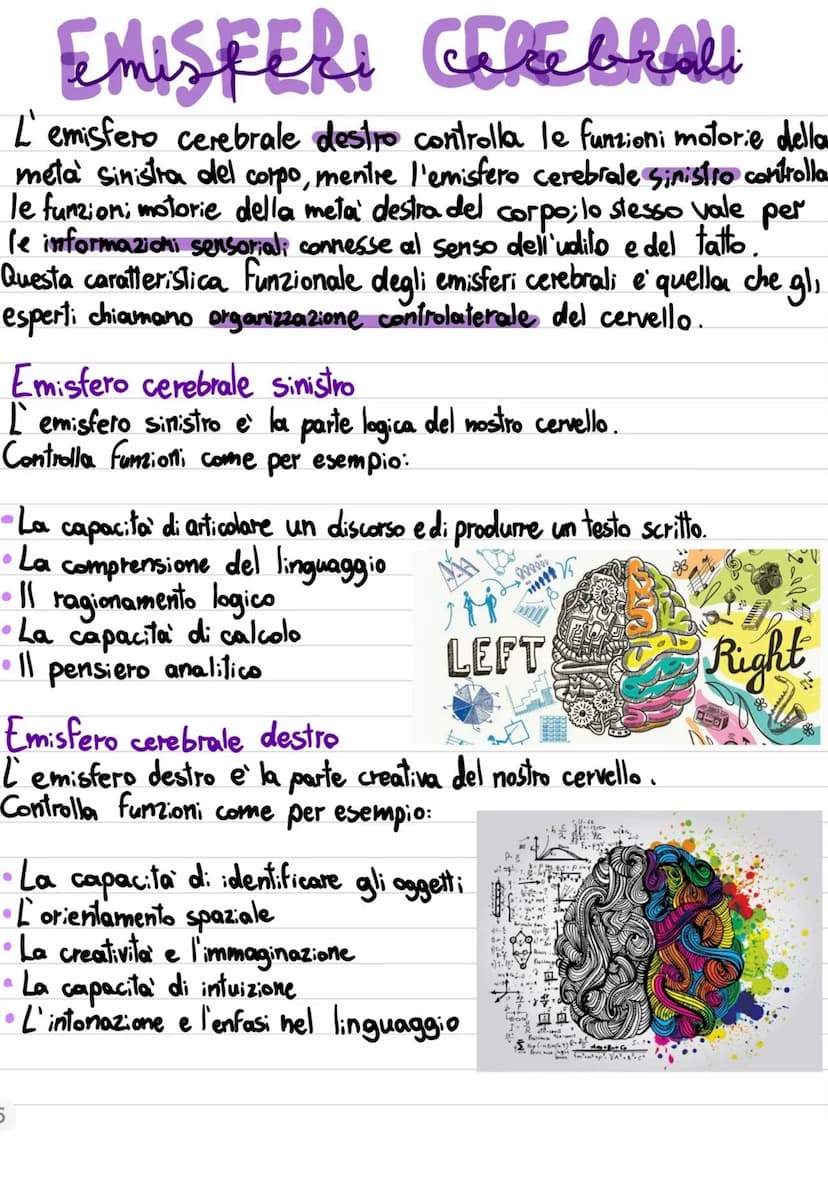 EMISFERI CEREBRALI
emisferi cerebrali
L'emisfero cerebrale destro controlla le funzioni motorie della
metà sinistra del corpo, mentre l'emisfero cerebrale sinistro controlla
le funzioni motorie della metà destra del corpo; lo stesso vale per
le informazioni sensoriali connesse al senso dell'udito e del tatto.
Questa caratteristica funzionale degli emisferi cerebrali è quella che gli
esperti chiamano organizzazione controlaterale del cervello.
Emisfero cerebrale sinistro
L'emisfero sinistro è la parte logica del nostro cervello.
Controlla funzioni come per esempio:
• La capacità di articolare un discorso e di produrre un testo scritto.
• La comprensione del linguaggio
• Il ragionamento logico
• La capacità di calcolo
• Il pensiero analitico
LEFT Right
Emisfero cerebrale destro
L'emisfero destro è la parte creativa del nostro cervello.
Controlla funzioni come per esempio:
• La capacità di identificare gli oggetti
• L'orientamento spaziale
• La creatività e l'immaginazione
• La capacità di intuizione
• L'intonazione e l'enfasi nel linguaggio
5